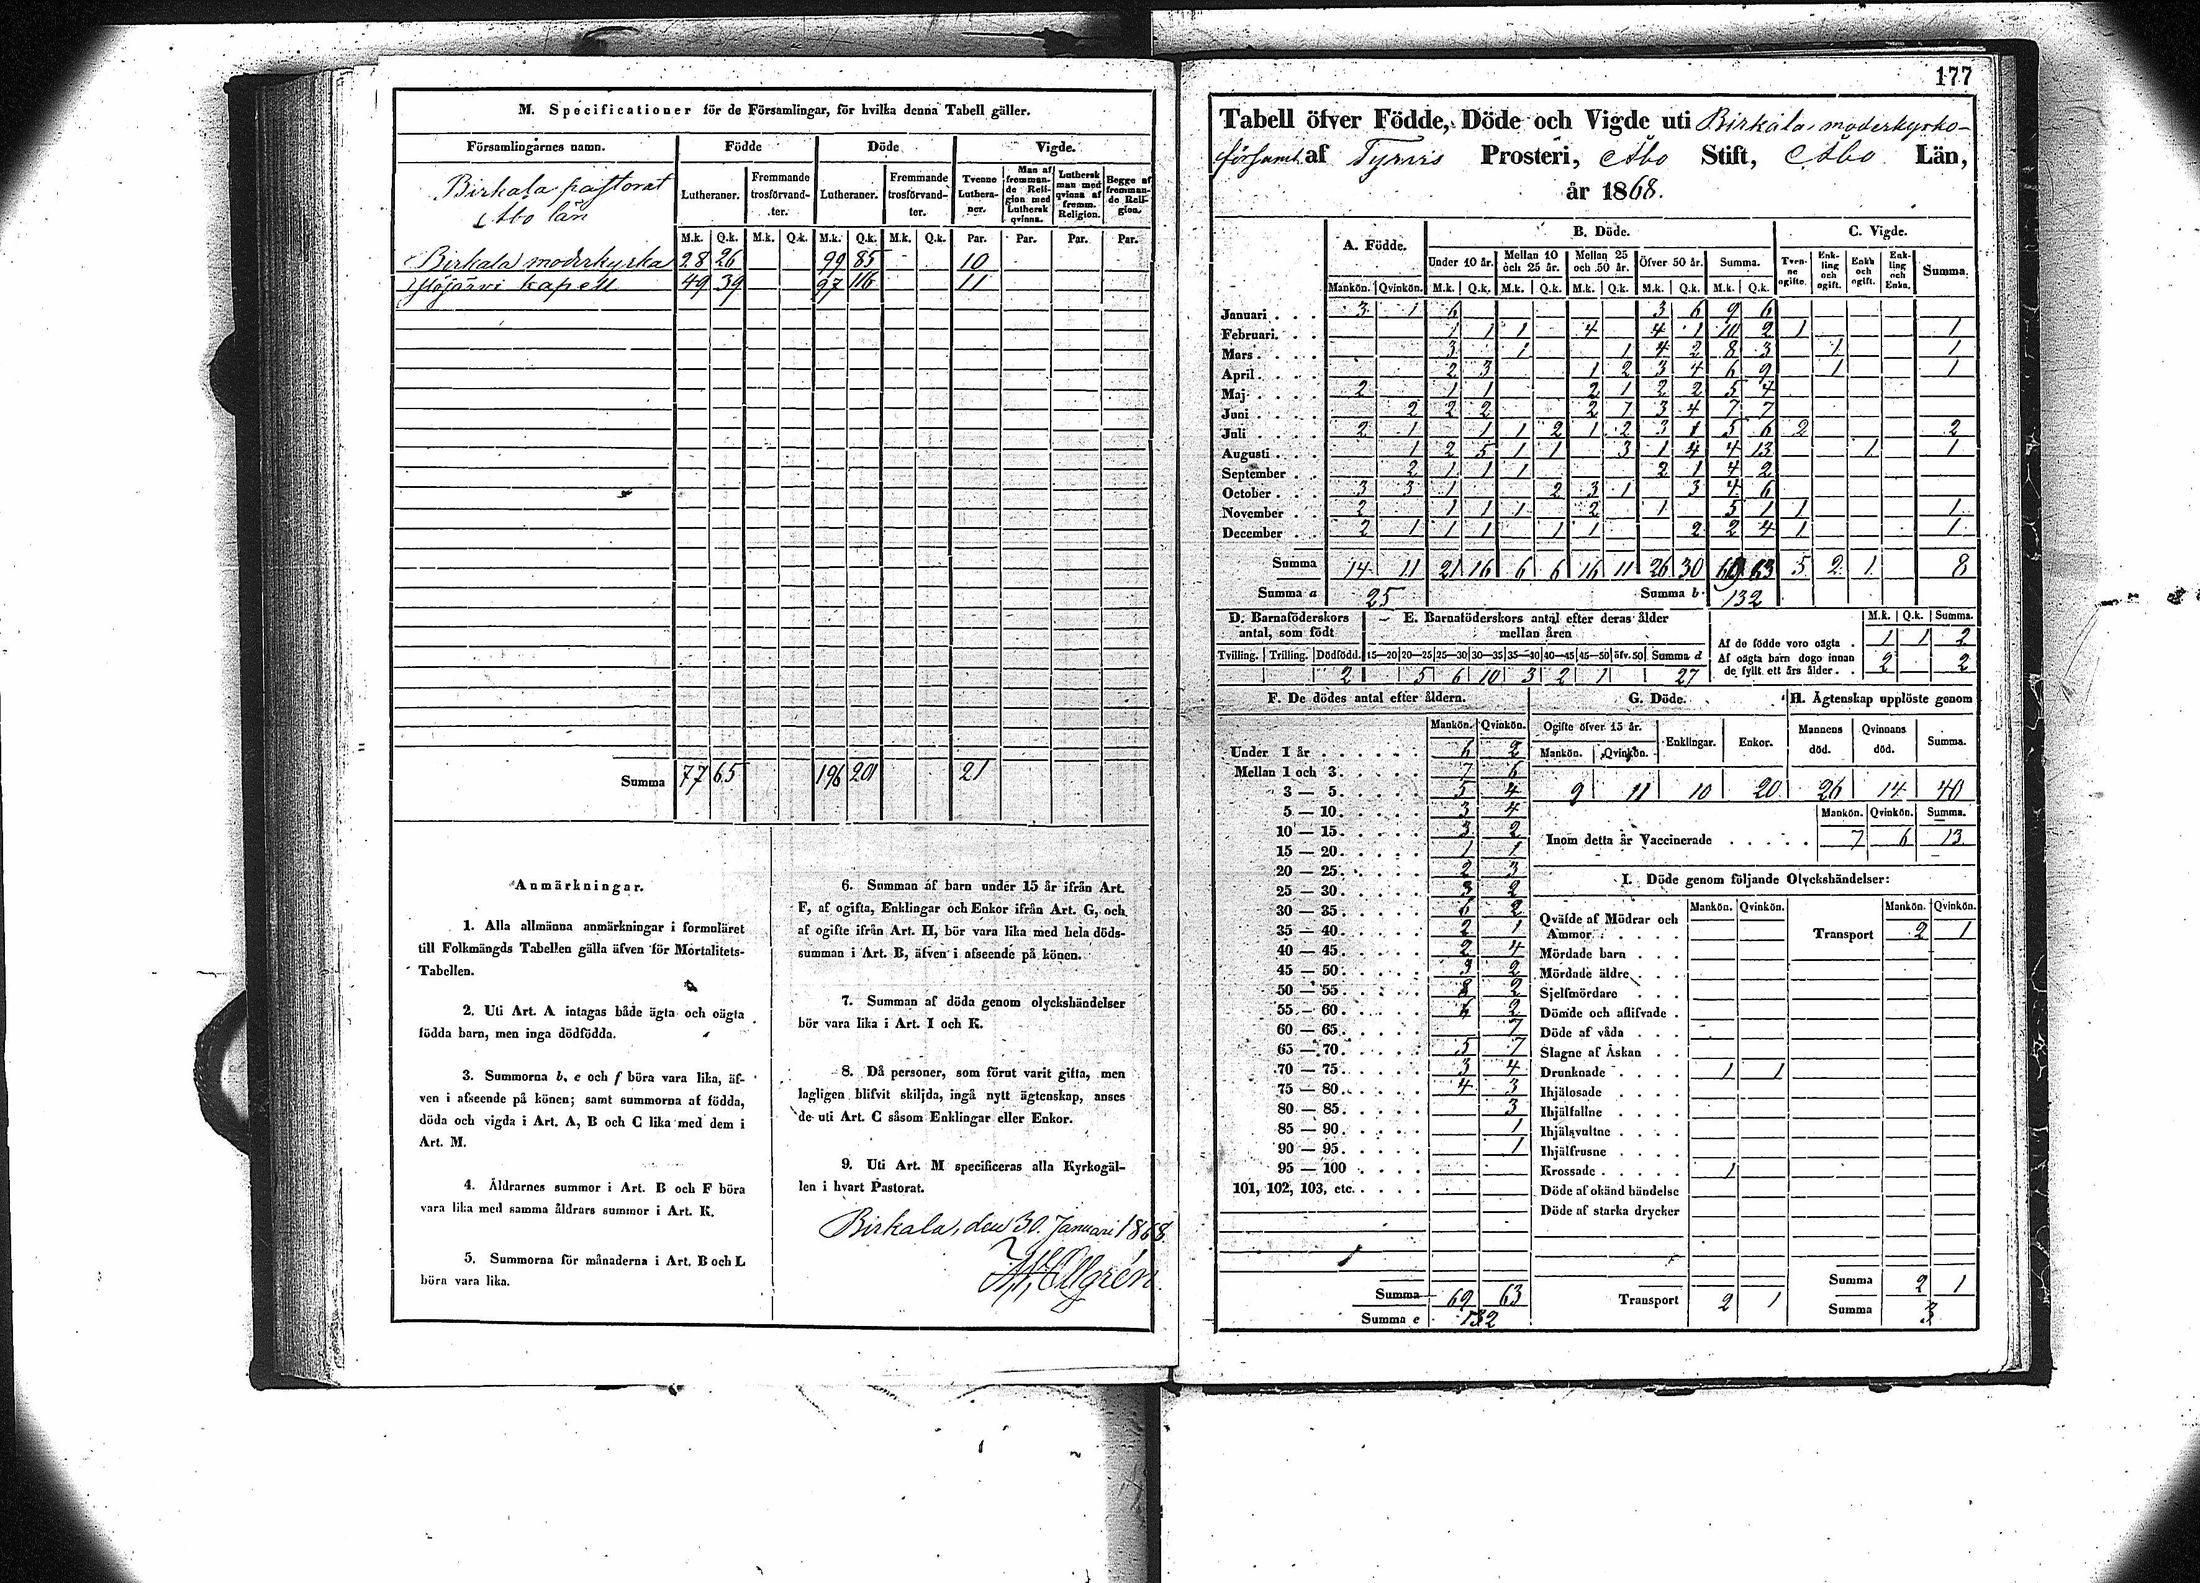 M. Specificationer för de Församlingar, för hvilka denna Tabell gäller.
Församlingarnes namn. Födde Döde Vigde.
Lutheraner. Fremmande trosförvandter. Lutheraner. Fremmande trosförvandter. Tvenne Lutheraner. Man af fremmande Religion med Luthersk qvinna. Luthersk man med qvinna af fremm. Religion. Begge af fremmande Religion.
Birkala pastorat
Åbo län
M.k. Q.k. M.k. Q.k. M.k. Q.k. M.k. Q.k. Par. Par. Par. Par.
Birkala moderkyrka 28 26 99 85 10
Ylöjärvi kapell 49 39 97 116 11
Summa 77 65 196 201 21
Anmärkningar.
1. Alla allmänna anmärkningar i formuläret
till Folkmängds Tabellen gälla äfven för Mortalitets-
Tabellen.
2. Uti Art. A intagas både ägta och oägta
födda barn, men inga dödfödda.
3. Summorna b, e och f böra vara lika, äf-
ven i afseende på könen; samt summorna af födda,
döda och vigda i Art. A, B och C lika med dem i
Art. M.
4. Åldrarnes summor i Art. B och F böra
vara lika med samma åldrars summor i Art. K.
5. Summorna för månaderna i Art. B och L
böra vara lika.
6. Summan af barn under 15 år ifrån Art.
F, af ogifta, Enklingar och Enkor ifrån Art. G, och
af ogifte ifrån Art. H, bör vara lika med hela döds-
summan i Art. B, äfven i afseende på könen.
7. Summan af döda genom olyckshändelser
bör vara lika i Art. I och K.
8. Då personer, som förut varit gifta, men
lagligen blifvit skiljda, ingå nytt ägtenskap, anses
de uti Art. C såsom Enklingar eller Enkor.
9. Uti Art. M specificeras alla Kyrkogäl-
len i hvart Pastorat.
Birkala, den 30. Januari 1868.
177
Tabell öfver Födde, Döde och Vigde uti Birkala moderkyrko-
församl. af Tyrvis Prosteri, Åbo Stift, Åbo Län,
år 1868.
A. Födde. B. Döde. C. Vigde.
Under 10 år. Mellan 10 och 25 år. Mellan 25 och 50 år. Öfver 50 år. Summa. Tvenne ogifte. Enkling och ogift. Enka och ogift. Enkling och Enka. Summa.
Mankön. Qvinkön. M.k. Q.k. M.k. Q.k. M.k. Q.k. M.k. Q.k. M.k. Q.k.
Januari 3 1 6 3 6 9 6
Februari 1 1 1 4 4 1 10 2 1 1
Mars 3 1 1 4 2 8 3 1 1
April 2 3 1 2 3 4 6 9 1 1
Maj 2 1 1 2 1 2 2 5 4
Juni 2 2 2 2 1 3 4 7 7
Juli 2 1 1 1 2 1 2 3 1 5 6 2 2
Augusti 1 2 5 1 1 3 1 4 4 13 1 1
September 2 1 1 1 2 1 4 2
October 3 3 1 2 3 1 3 4 6
November 2 1 1 1 2 1 5 1 1 1
December 2 1 1 1 1 1 2 2 4 1 1
Summa 14 11 21 16 6 6 16 11 26 30 69 63 5 2 1 8
Summa a 25 Summa b 132
D. Barnaföderskors antal, som födt
Tvilling. Trilling. Dödfödd.
2
E. Barnaföderskors antal efter deras ålder mellan åren
15—20 20—25 25—30 30—35 35—40 40—45 45—50 öfv. 50 Summa d
5 6 10 3 2 1 27
M.k. Q.k. Summa.
Af de födde voro oägta 1 1 2
Af oägta barn dogo innan
de fyllt ett års ålder 2 2
F. De dödes antal efter åldern.
Mankön. Qvinkön.
Under 1 år 6 2
Mellan 1 och 3 7 6
3 — 5 5 4
5 — 10 3 4
10 — 15 3 2
15 — 20 1 1
20 — 25 2 3
25 — 30 3 2
30 — 35 6 2
35 — 40 2 1
40 — 45 2 4
45 — 50 3 2
50 — 55 8 2
55 — 60 6 2
60 — 65 7
65 — 70 5 7
70 — 75 3 4
75 — 80 4 3
80 — 85 3
85 — 90 1
90 — 95 1
95 — 100
101, 102, 103, etc.
Summa 69 63
Summa e 132
G. Döde.
Ogifte öfver 15 år. Enklingar. Enkor.
Mankön. Qvinkön.
9 11 10 20
H. Ägtenskap upplöste genom
Mannens död. Qvinnans död. Summa.
26 14 40
Mankön. Qvinkön. Summa.
Inom detta år Vaccinerade 7 6 13
I. Döde genom följande Olyckshändelser:
Mankön. Qvinkön. Mankön. Qvinkön.
Qväfde af Mödrar och
Ammor
Transport 2 1
Mördade barn
Mördade äldre
Sjelfmördare
Dömde och aflifvade
Döde af våda
Slagne af Åskan
Drunknade 1 1
Ihjälosade
Ihjälfallne
Ihjälsvultne
Ihjälfrusne
Krossade 1
Döde af okänd händelse
Döde af starka drycker
Transport 2 1
Summa 2 1
Summa 3